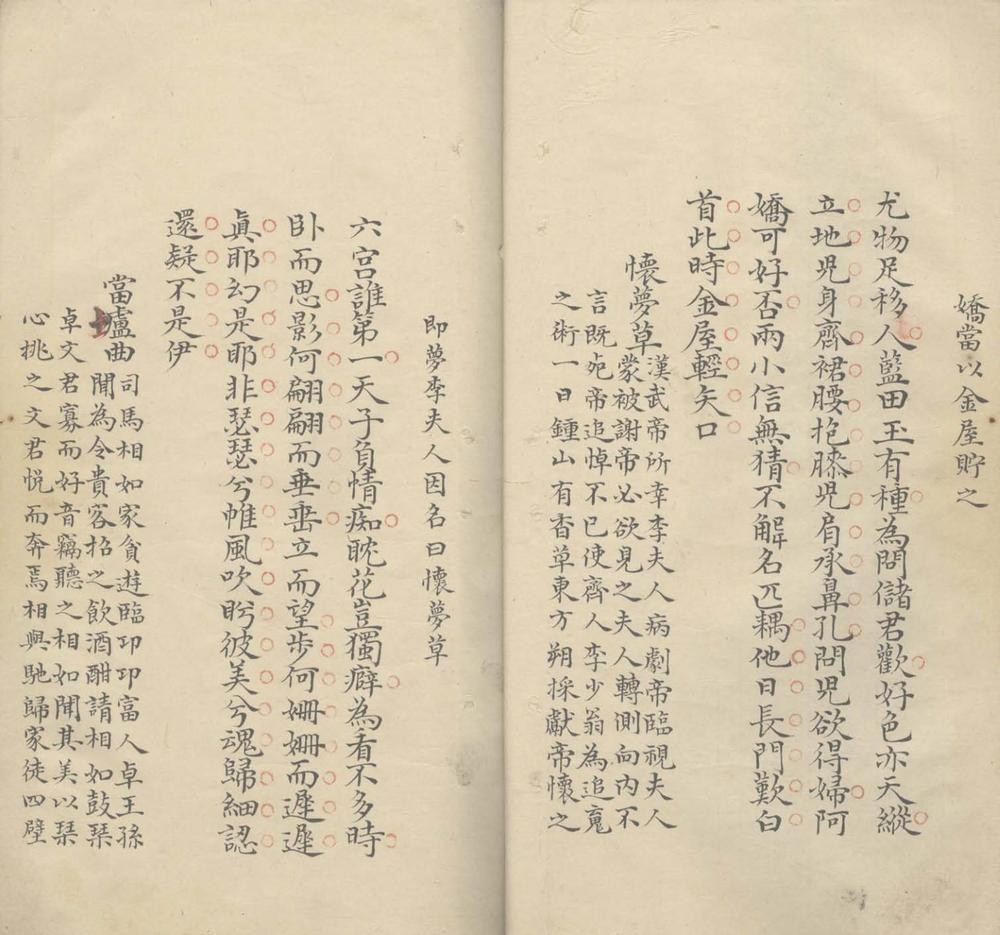 嬌當以金屋貯之
尤物足移人藍田玉有種為問儲君歡好色亦天縱
立地児身齊裙腰抱膝児肩承鼻孔問児欲得婦阿
嬌可好否兩小信無猜不解名匹耦他日長門歎白
首此時金屋輕矢口
懷夢草
漢武帝所幸李夫人病劇帝臨視夫人
蒙被謝帝必欲見之夫人轉側向内不
言既𣨰帝追悼不已使齊人李少翁為追䰟
之術一日鍾山有香草東方朔採獻帝懷之
即夢李夫人因名曰懷夢草
六宫誰第一天子負情痴耽花豈獨癖為看不多時
卧而思影何翩翩而垂垂立而望步何姍姍而遲遲
眞耶幻是耶非瑟瑟兮帷風吹盻彼美兮魂歸細認
還疑不是伊
當壚曲
司馬相如家貧遊臨邛邛富人卓王孫
聞為令貴客招之飲酒酣請相如鼓琹
卓文君寡而好音竊聽之相如聞其美以琹
心挑之文君悅而奔焉相與馳歸家徒四壁